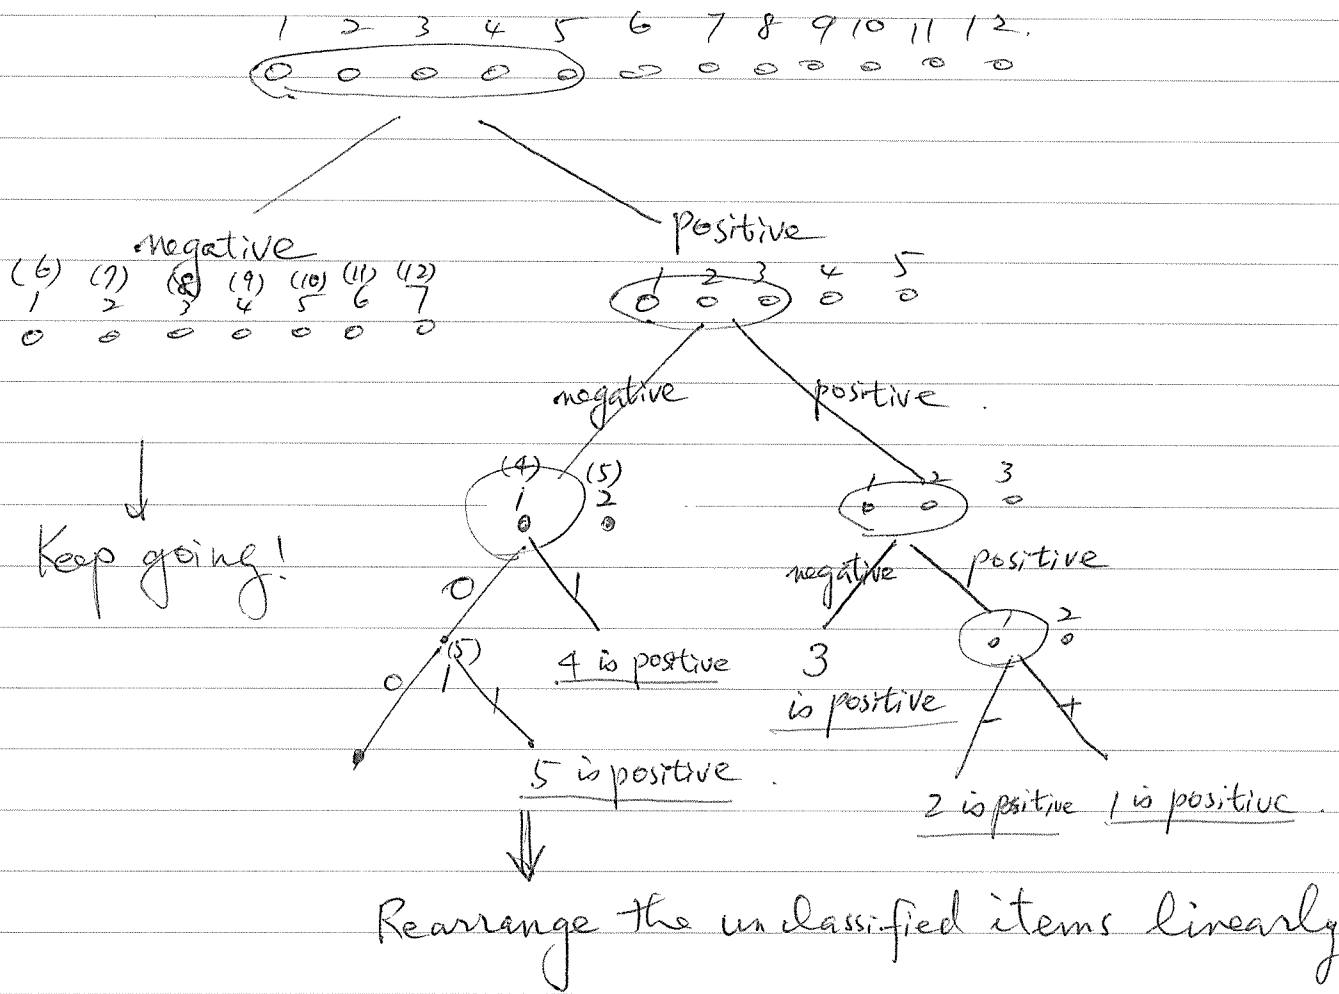 1 2 3 4 5 6 7 8 9 10 11 12.
negative
positive
(6) (7) (8) (9) (10) (11) (12)
1 2 3 4 5 6 7
1 2 3 4 5
negative
positive .
(4) (5)
1 2
1 2 3
Keep going!
negative
positive
0 1
1 2
(5)
1
4 is postive
3
is positive
0 1
- +
5 is positive .
2 is positive
1 is positive .
Rearrange the unclassified items linearly